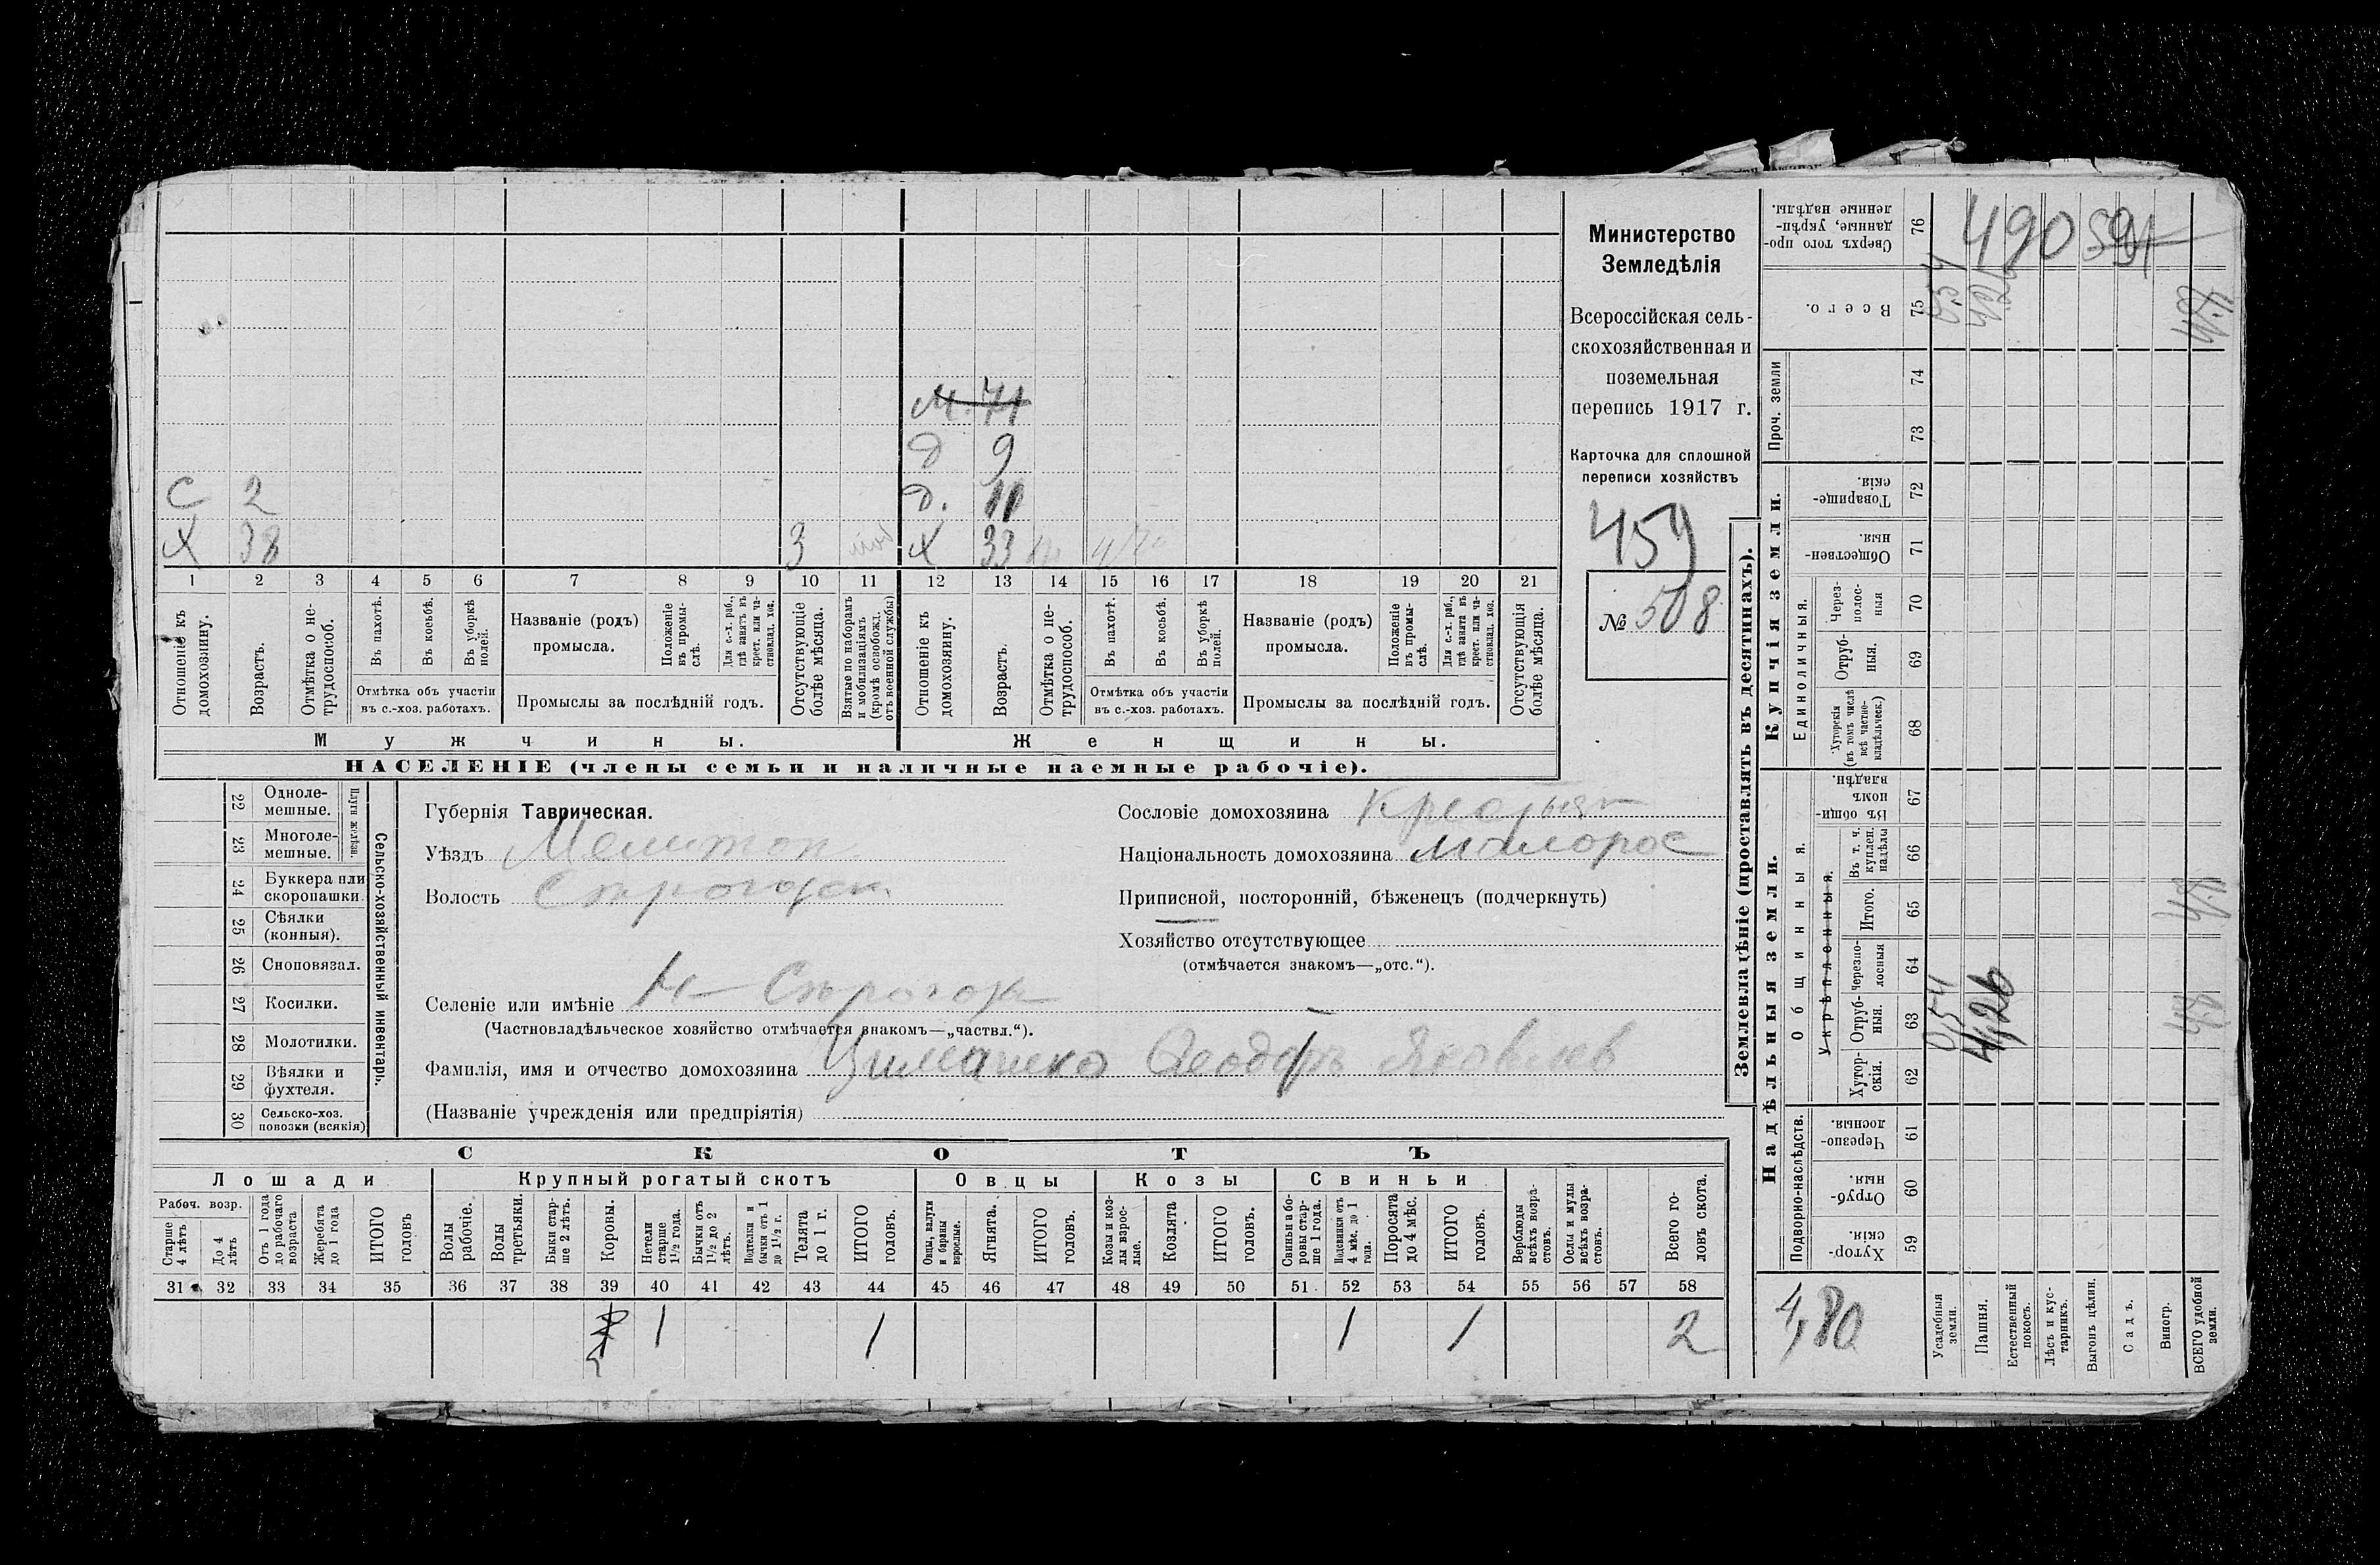 С 2
Х 38 3
М. 71
д 9
д. 11
Х 33
1 2 3 4 5 6 7 8 9 10 11 12 13 14 15 16 17 18 19 20 21
Отношеніе къ домохозяину.
Возрастъ.
Отмѣтка о не-
трудоспособ.
Въ пахотѣ.
Въ косьбѣ.
Въ уборкѣ
полей.
Отмѣтка объ участіи
въ с.-хоз. работахъ.
Названіе (родъ)
промысла.
Положеніе
въ промы-
слѣ.
Для с.-х. раб.,
гдѣ занятъ въ
крест. или ча-
стновлад. хоз.
Промыслы за послѣдній годъ.
Отсутствующіе
болѣе мѣсяца.
Взятые по наборамъ
и мобилизаціямъ
(кромѣ освобожд.
отъ военной службы)
Отношеніе къ
домохозяину.
Возрастъ.
Отмѣтка о не-
трудоспособ.
Въ пахотѣ.
Въ косьбѣ.
Въ уборкѣ
полей.
Отмѣтка объ участіи
въ с.-хоз. работахъ.
Названіе (родъ)
промысла.
Положеніе
въ промы-
слѣ.
Для с.-х. раб.,
гдѣ занята въ
крест. или ча-
стновлад. хоз.
Промыслы за послѣдній годъ.
Отсутствующія
болѣе мѣсяца.
Мужчины.
Женщины.
НАСЕЛЕНІЕ (члены семьи и наличные наемные рабочіе).
Министерство
Земледѣлія
Всероссійская сель-
скохозяйственная и
поземельная
перепись 1917 г.
Карточка для сплошной
переписи хозяйствъ
459
№ 508
22 Одноле-
мешные.
23 Многоле-
мешные.
Плуги желѣзн.
24 Буккера или
скоропашки.
25 Сѣялки
(конныя).
26 Сноповязал.
27 Косилки.
28 Молотилки.
29 Вѣялки и
фухтеля.
30 Сельско-хоз.
повозки (всякія)
Сельско-хозяйственный инвентарь.
Губернія Таврическая.
Уѣздъ Мелитоп.
Волость
Сословіе домохозяина Крестьян
Національность домохозяина малорос
Приписной, посторонній, бѣженецъ (подчеркнуть)
Хозяйство отсутствующее
(отмѣчается знакомъ—„отс.“).
Селеніе или имѣніе Н-
(Частновладѣльческое хозяйство отмѣчается знакомъ—„частвл.“).
Фамилія, имя и отчество домохозяина Феодоръ Яковлев
(Названіе учрежденія или предпріятія)
СКОТЪ
Лошади
Крупный рогатый скотъ
Овцы
Козы
Свиньи
Рабоч. возр.
Старше
4 лѣтъ
До 4
лѣтъ
Отъ 1 года
до рабочаго
возраста
Жеребята
до 1 года
ИТОГО
головъ
Волы
рабочіе.
Волы
третьяки.
Быки стар-
ше 2 лѣтъ.
Коровы.
Нетели
старше
1½ года.
Бычки отъ
1½ до 2
лѣтъ.
Подтелки и
бычки отъ 1
до 1½ г.
Телята
до 1 г.
ИТОГО
головъ.
Овцы, валухи
и бараны
взрослые.
Ягнята.
ИТОГО
головъ.
Козы и коз-
лы взрос-
лые.
Козлята
ИТОГО
головъ.
Свиньи и бо-
ровы стар-
ше 1 года.
Подсвинки отъ
4 мѣс. до 1
года.
Поросята
до 4 мѣс.
ИТОГО
головъ.
Верблюды
всѣхъ возра-
стовъ.
Ослы и мулы
всѣхъ возра-
стовъ.
Всего го-
ловъ скота.
31 32 33 34 35 36 37 38 39 40 41 42 43 44 45 46 47 48 49 50 51 52 53 54 55 56 57 58
1 1 1 1 2
Землевладѣніе (проставлять въ десятинахъ).
Надѣльныя земли.
Купчія земли.
Проч. земли
Сверхъ того про-
данные, укрѣп-
ленные надѣлы.
76
Всего.
75
74
73
Товарище-
скія.
72
Обществен-
ныя.
71
Единоличныя.
Через-
полос-
ныя
70
Отруб-
ныя.
69
Хуторскія
(въ томъ числѣ
всѣ частно-
владѣльческ.)
68
Общинныя.
Въ общи-
номъ
владѣн.
67
Укрѣпленныя.
Въ т. ч.
куплен.
надѣлы
66
Итого.
65
Черезпо-
лосныя
64
Отруб-
ныя.
63
Хутор-
скія.
62
Подворно-наслѣдств.
Черезпо-
лосныя.
61
Отруб-
ныя.
60
Хутор-
скія.
59
490 591
0,54
4,26
4,80
Усадебныя
земли.
Пашня.
Естественный
покосъ.
Лѣсъ и кус-
тарникъ.
Выгонъ цѣлин.
Садъ.
Виногр.
ВСЕГО удобной
земли.